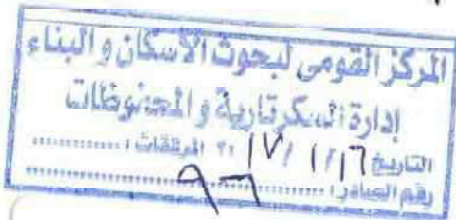 المركز القومى لبحوث الأسكان والبناء
إدارة السكرتارية والمحفوظات
التاريخ ١٦ / ١ / ١٧ ٢٠ المرفقات :
رقم الصادر : ٩٦